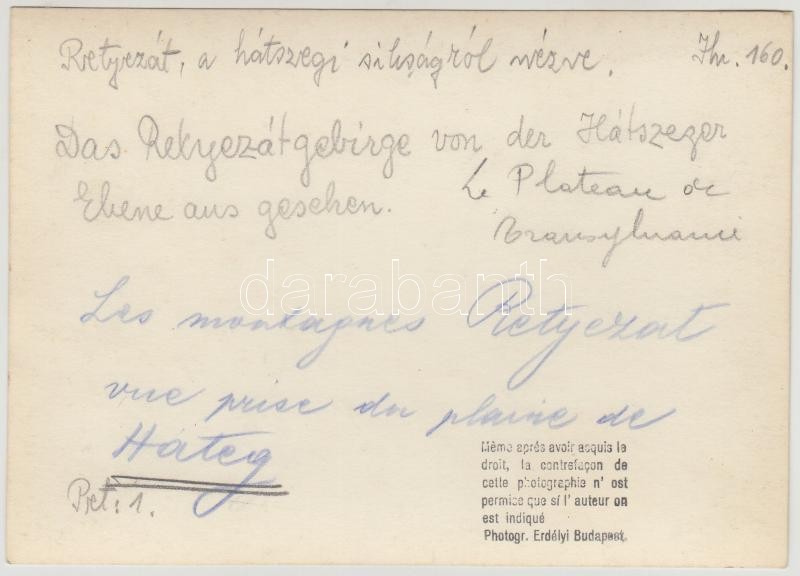 Retyezát, a hátszegi síkságról nézve. Thr. 160.
Das Retyezátgebirge von der Hátszeger
Ebene aus gesehen.
Le Plateau de
Transylvanie
darabanth
Les montagnes Retyezat
vue prise du plaine de
Hateg
Ret: 1.
Même aprés avoir acquis le
droit, la contrefaçon de
cette photographie n' ost
permise que si l' auteur on
est indiqué
Photogr. Erdélyi Budapest.